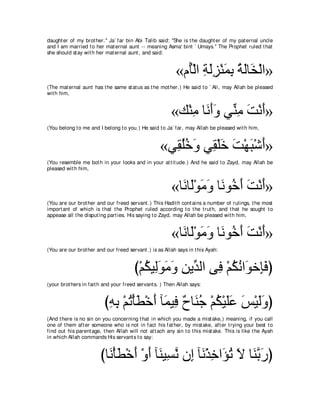 daughter of my brother." Ja`far bin Abi Talib said: "She is the daughter of my paternal uncle
and I am married to her maternal aunt -- meaning Asma' bint `Umays." The Prophet ruled that
she should stay with her maternal aunt, and said:
«الْخَالَةُ بِمَنْزِلَةِ الْأُم»
(The maternal aunt has the same status as the mother.) He said to `Ali, may Allah be pleased
with him,
«أَنْتَ مِنِّي وَأَنَا مِنْكَ»
(You belong to me and I belong to you.) He said to Ja`far, may Allah be pleased with him,
«أَشْبَهْتَ خَلْقِي وَخُلُقِي»
(You resemble me both in your looks and in your attitude.) And he said to Zayd, may Allah be
pleased with him,
«أَنْتَ أَخُونَا وَمَوْلَانَا»
(You are our brother and our freed servant.) This Hadith contains a number of rulings, the most
important of which is that the Prophet ruled according to the truth, and that he sought to
appease all the disputing parties. His saying to Zayd, may Allah be pleased with him,
«أَنْتَ أَخُونَا وَمَوْلَانَا»
(You are our brother and our freed servant.) is as Allah says in this Ayah:
(فَإِخوَانُكُمْ فِى الدِّينِ وَمَوَلِيكُمْ)
(your brothers in faith and your freed servants.) Then Allah says:
(وَلَيْسَ عَلَيْكُمْ جُنَاحٌ فِيمَآ أَخْطَأْتُمْ بِهِ)
(And there is no sin on you concerning that in which you made a mistake,) meaning, if you call
one of them after someone who is not in fact his father, by mistake, after trying your best to
find out his parentage, then Allah will not attach any sin to this mistake. This is like the Ayah
in which Allah commands His servants to say:
(رَبَّنَا لاَ تُؤَاخِذْنَآ إِن نَّسِينَآ أَوْ أَخْطَأْنَا)